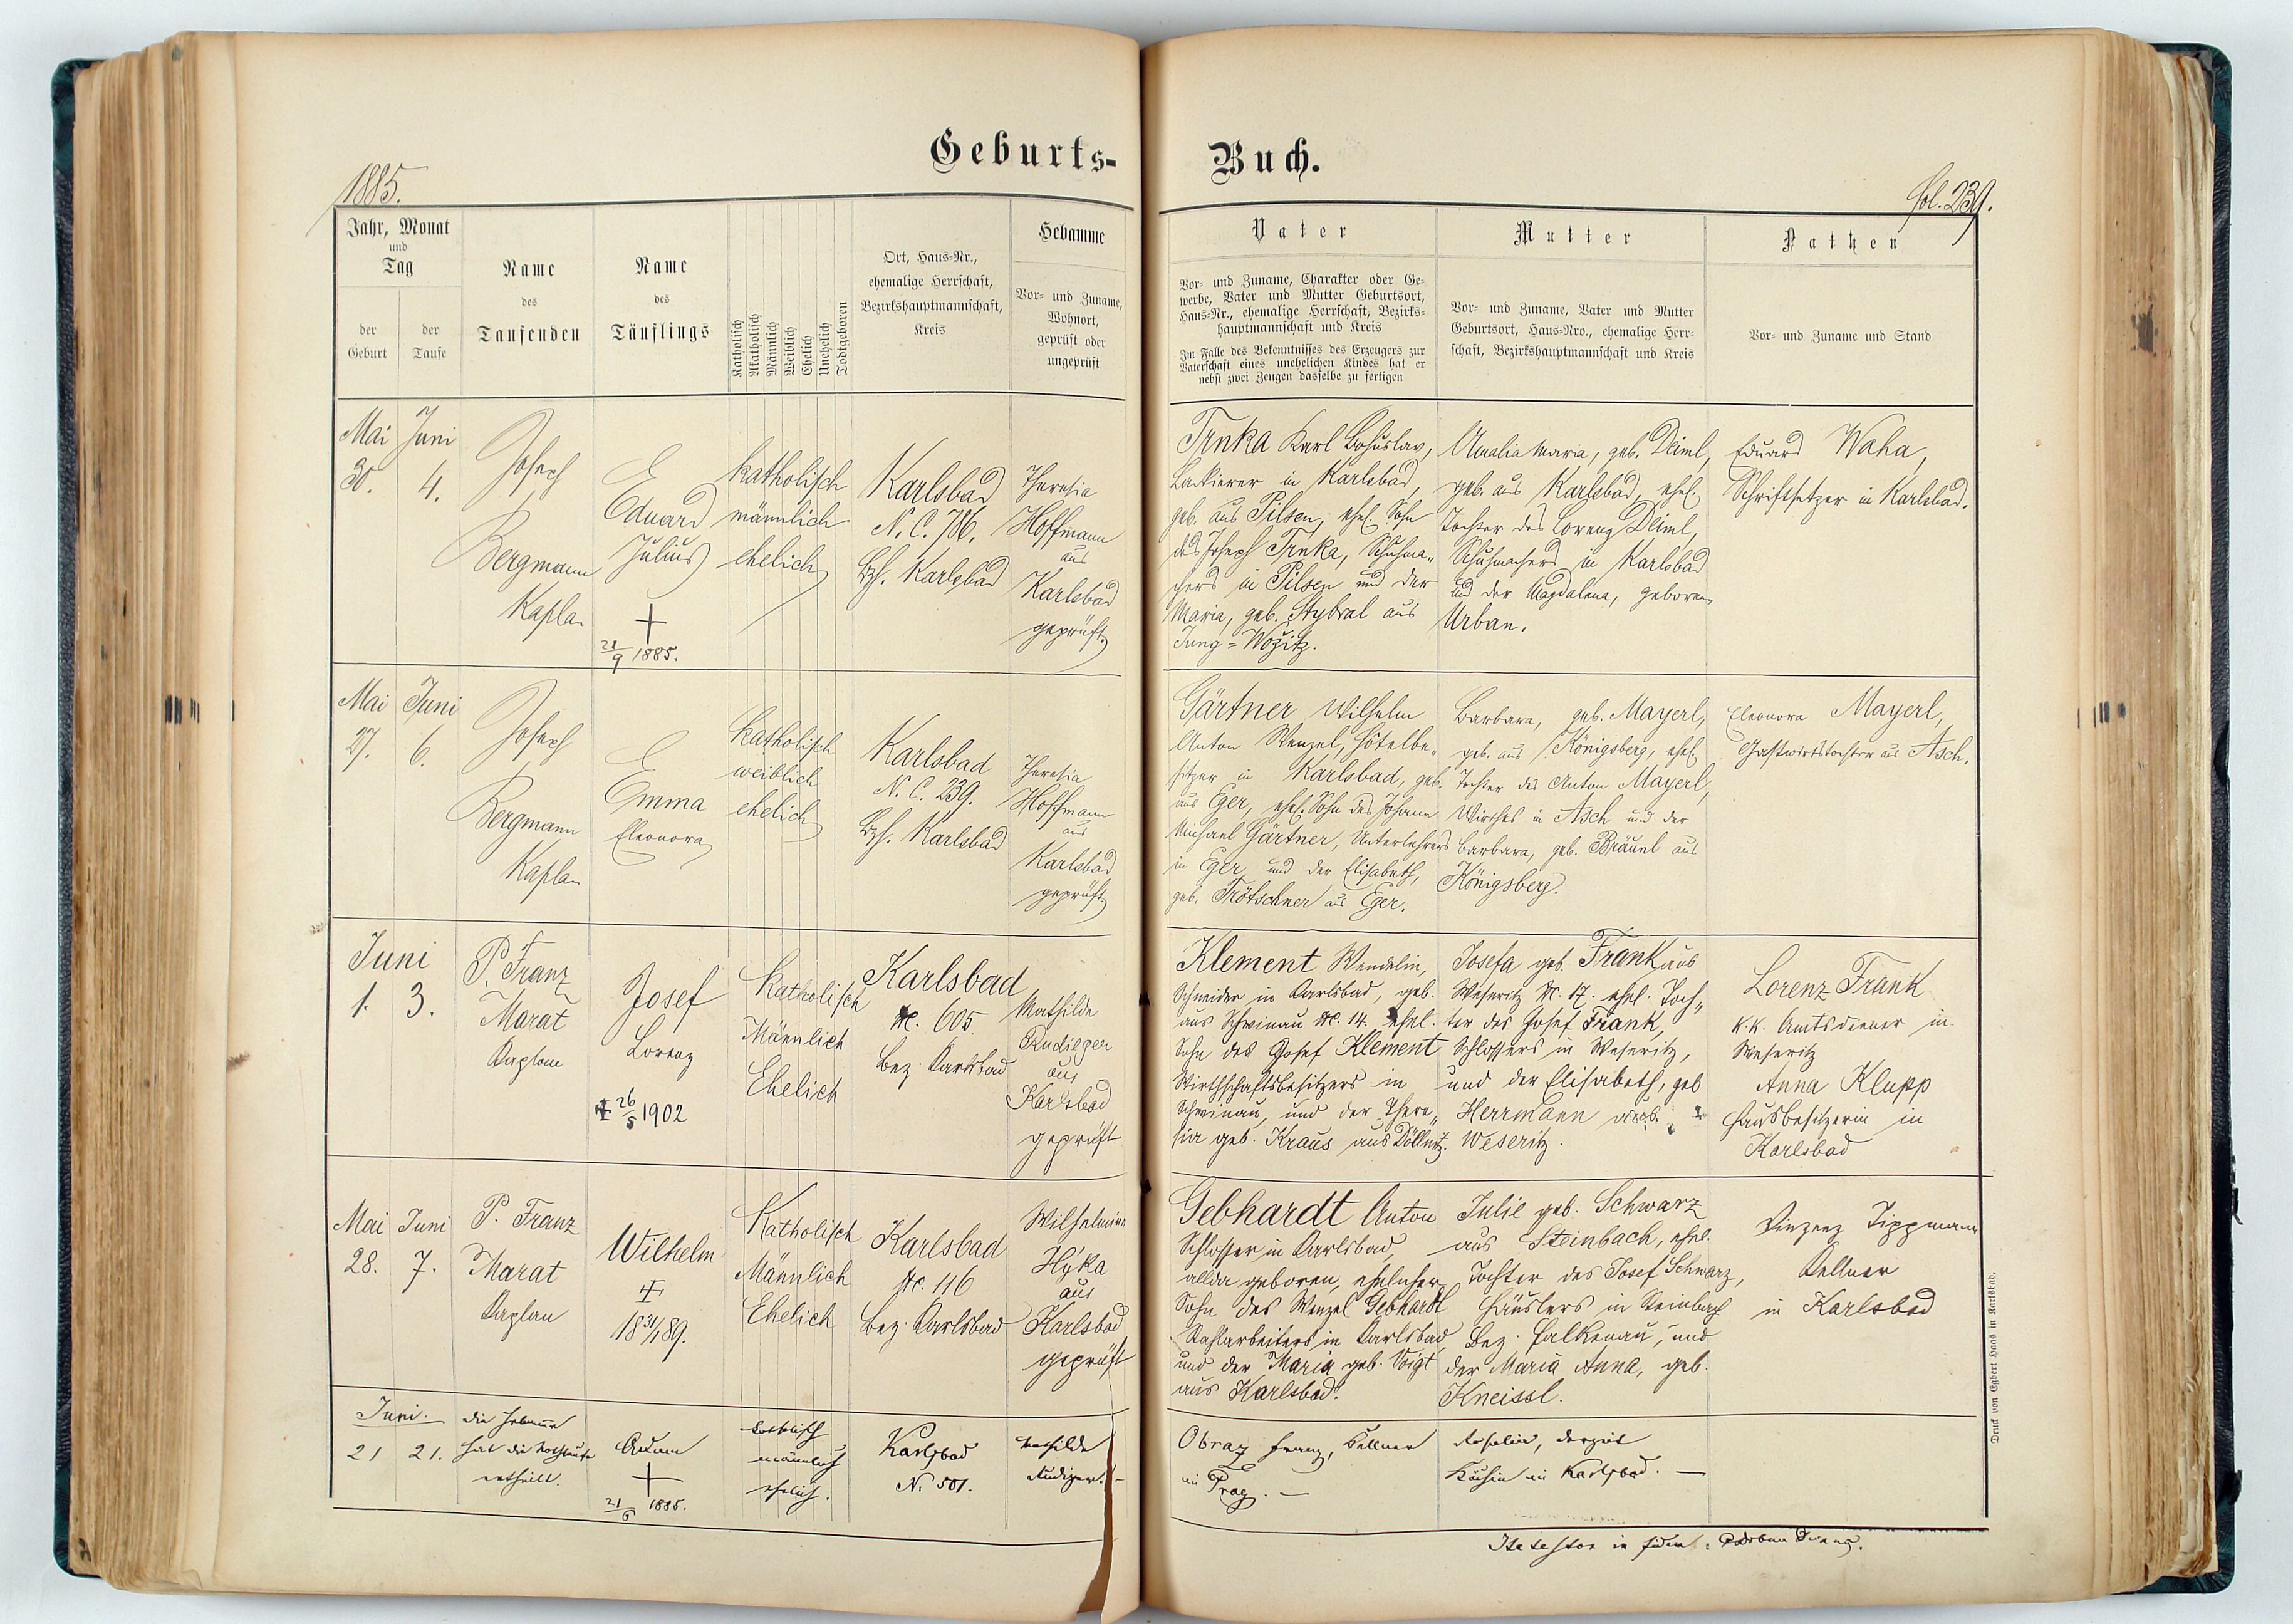 Geburts-
Buch.
1885.
fol. 239.
Jahr, Monat
und
Tag
der
Geburt
der
Taufe
Name
des
Taufenden
Name
des
Täuflings
Katholisch
Akatholisch
Männlich
Weiblich
Ehelich
Unehelich
Todtgeboren
Ort, Haus-Nr.,
ehemalige Herrschaft,
Bezirkshauptmannschaft,
Kreis
Hebamme
Vor- und Zuname,
Wohnort,
geprüft oder
ungeprüft
Vater
Vor- und Zuname, Charakter oder Ge-
werbe, Vater und Mutter Geburtsort,
Haus-Nr., ehemalige Herrschaft, Bezirks-
hauptmannschaft und Kreis
Im Falle des Bekenntnisses des Erzeugers zur
Vaterschaft eines unehelichen Kindes hat er
nebst zwei Zeugen dasselbe zu fertigen
Mutter
Vor- und Zuname, Vater und Mutter
Geburtsort, Haus-Nro., ehemalige Herr-
schaft, Bezirkshauptmannschaft und Kreis
Pathen
Vor- und Zuname und Stand
Mai
30.
Juni
4.
Joseph
Bergmann
Kaplan
Eduard
Julius
28/9 1885.
katholisch
männlich
ehelich
Karlsbad
N. C. 786.
Bzh. Karlsbad
Theresia
Hoffmann
aus
Karlsbad
geprüft
Trnka Karl Bohuslav,
Lackierer in Karlsbad,
geb. aus Pilsen, ehel. Sohn
des Joseph Trnka, Schuhma-
chers in Pilsen und der
Maria, geb. Stybral aus
Jung-Wožitz.
Amalia Maria, geb. Deiml,
geb. aus Karlsbad, ehel.
Tochter des Lorenz Deiml,
Schuhmachers in Karlsbad
und der Magdalena, geborene
Urban.
Eduard Waha,
Schriftsetzer in Karlsbad.
Mai
27.
Juni
6.
Joseph
Bergmann
Kaplan
Emma
Eleonora
katholisch
weiblich
ehelich
Karlsbad
N. C. 239.
Bzh. Karlsbad
Theresia
Hoffmann
aus
Karlsbad
geprüft
Gärtner Wilhelm
Anton Wenzel, Hôtelbe-
sitzer in Karlsbad, geb.
aus Eger, ehel. Sohn des Johann
Michael Gärtner, Unterlehrers
in Eger und der Elisabeth,
geb. Trötschner aus Eger.
Barbara, geb. Mayerl,
geb. aus Königsberg, ehel.
Tochter des Anton Mayerl,
Wirthes in Asch und der
Barbara, geb. Bräunl aus
Königsberg.
Eleonora Mayerl,
Gastwirtstochter aus Asch.
Juni
1. 3.
P. Franz
Marat
Kaplan
Josef
Lorenz
26/5 1902
Katholisch
Männlich
Ehelich
Karlsbad
Nr. 605
Bez. Karlsbad
Mathilde
Rudieger
aus
Karlsbad
geprüft
Klement Wendelin,
Schneider in Karlsbad, geb.
aus Schwinau Nr. 14. ehel.
Sohn des Josef Klement
Wirthschaftsbesitzers in
Schwinau, und der There-
sia geb. Kraus aus Döllnitz.
Josefa geb. Frank aus
Weseritz Nr. 17. ehel. Toch-
ter des Josef Frank,
Schlossers in Weseritz,
und der Elisabeth, geb
Herrmann aus
Weseritz.
Lorenz Frank
k. k. Amtsdiener in
Weseritz
Anna Klupp
Hausbesitzerin in
Karlsbad
Mai
28.
Juni
7.
P. Franz
Marat
Kaplan
Wilhelm
18 31/1 89.
Katholisch
Männlich
Ehelich
Karlsbad
Nr. 116
Bez. Karlsbad
Wilhelmine
Hyka
aus
Karlsbad
geprüft
Gebhardt Anton
Schlosser in Karlsbad,
allda geboren, ehelicher
Sohn des Wenzel Gebhardt
Stahlarbeiters in Karlsbad
und der Maria geb. Voigt
aus Karlsbad.
Julie geb. Schwarz
aus Steinbach, ehel.
Tochter des Josef Schwarz,
Häuslers in Steinbach
Bez. Falkenau, und
der Maria Anna, geb.
Kneissl.
Vinzenz Tippmann
Kellner
in Karlsbad
Juni.
21 21.
die Hebamme
hat die Nothtaufe
ertheilt.
Adam
21/6 1885.
katholisch
männlich
ehelich.
Karlsbad
N. 501.
Mathilde
Rudiger.
Obraz Franz, Kellner
in Prag.
Rosalia, derzeit
Köchin in Karlsbad.
in fidem:
Druck von Egbert Haas in Karlsbad.